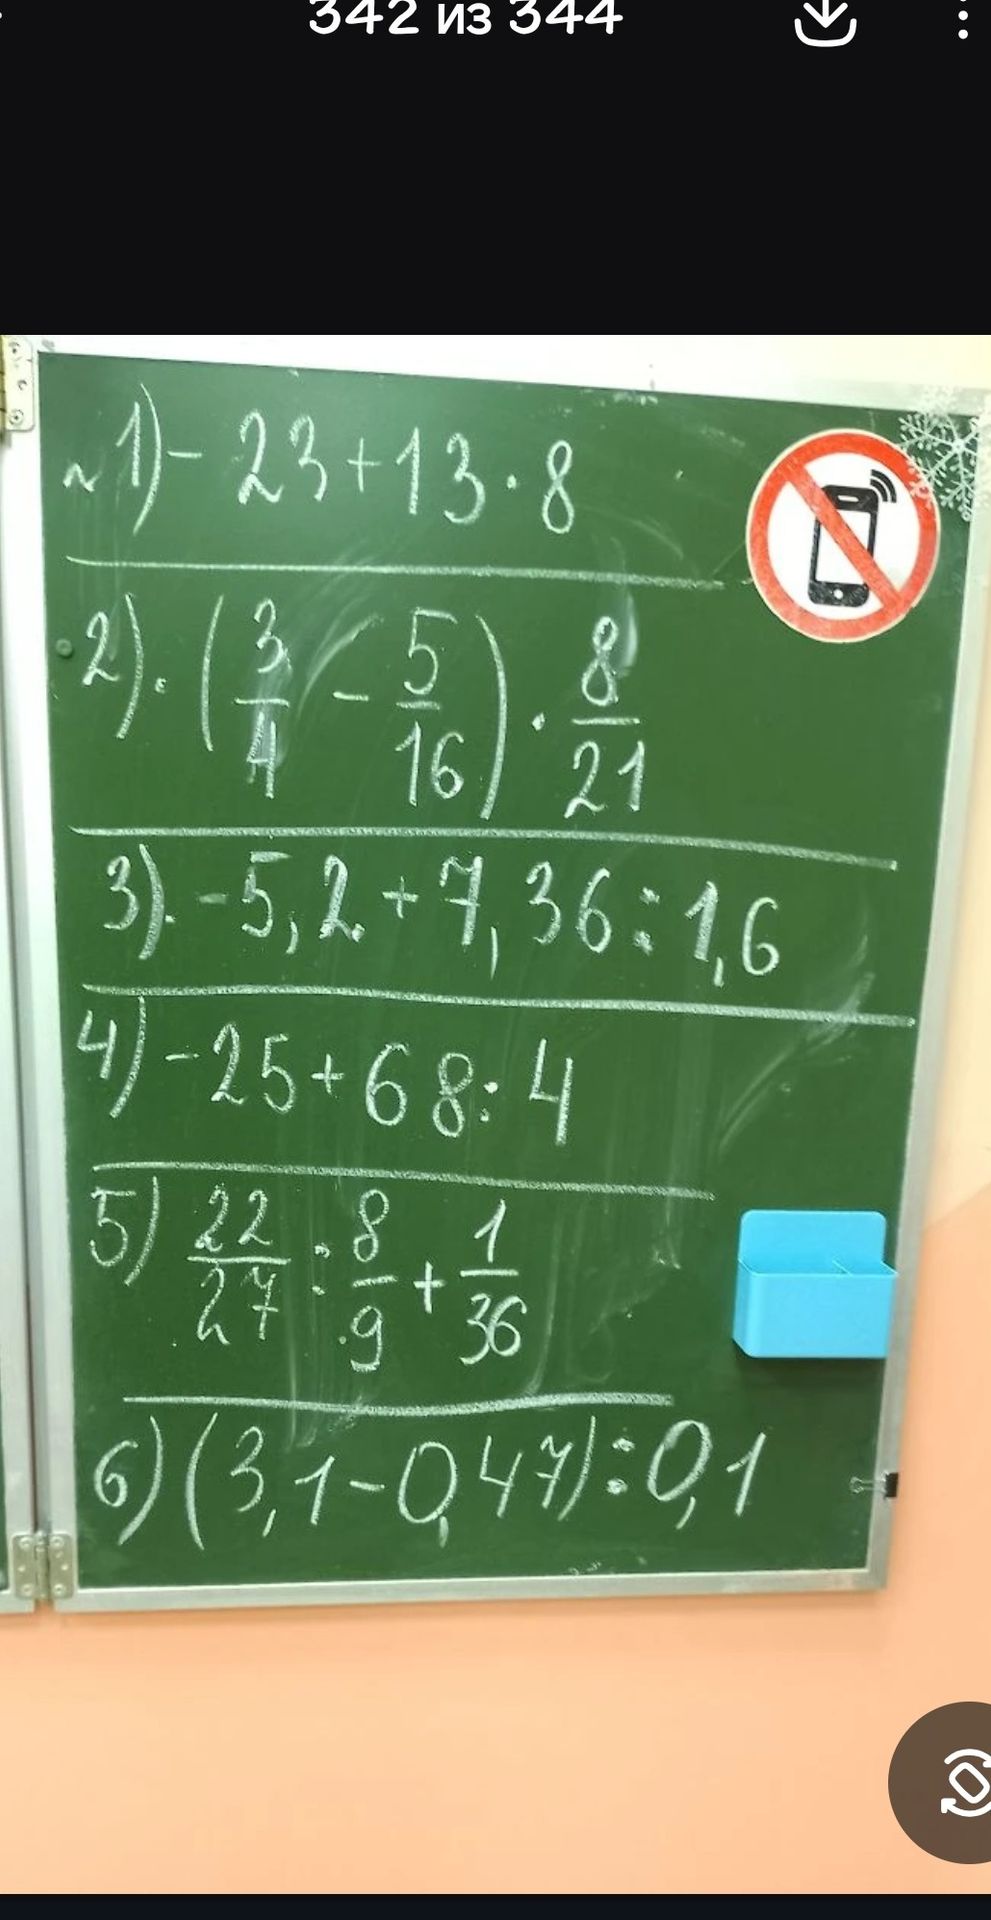 342 из 344
1) - 23 + 13 · 8
2). (3/4 - 5/16) · 8/21
3). -5,2 + 7,36 : 1,6
4) - 25 + 68 : 4
5) 22/27 : 8/9 + 1/36
6) (3,1 - 0,47) : 0,1